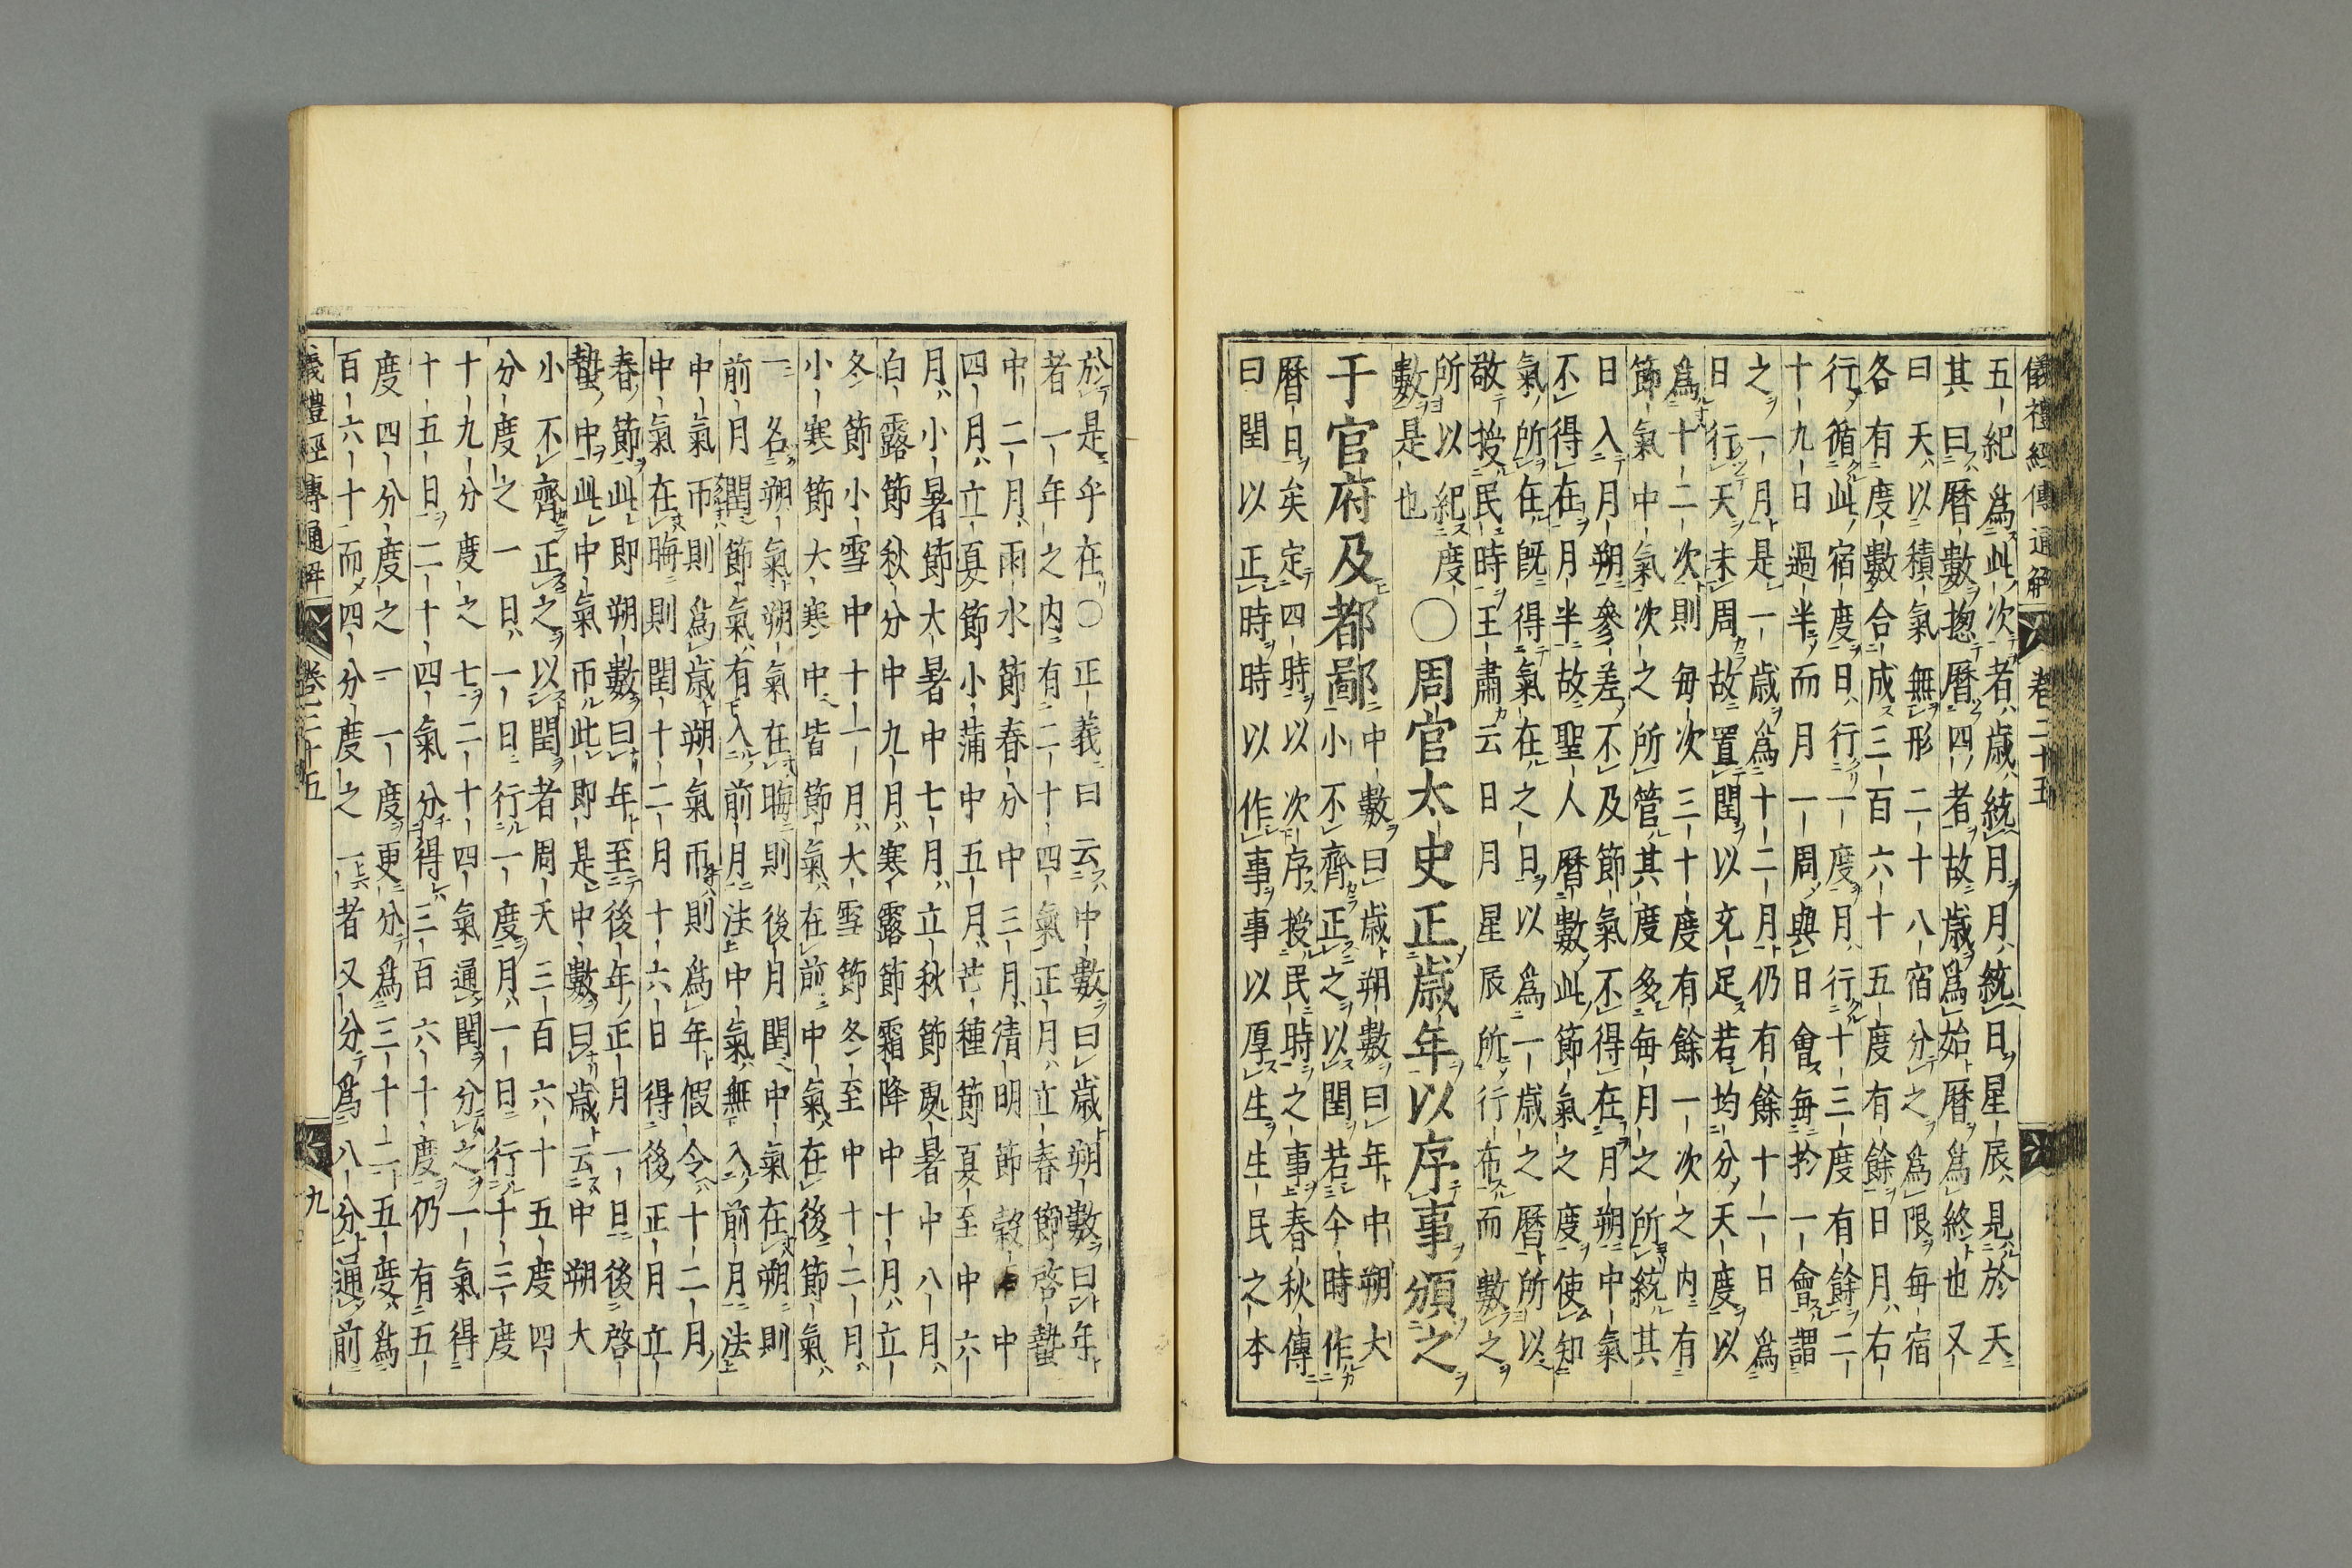 儀禮經傳通解 卷二十五
五紀爲此次者歳統月月統日星辰見於天
其曰曆數揔曆四者故歳爲始曆爲終也又
曰天以積氣無形二十八宿分之爲限每宿
各有度數合成三百六十五度有餘日月右
行循此宿度日行一度月行十三度有餘二
十九日過半而月一周與日會每於一會謂
之一月是一歳爲十二月仍有餘十一日爲
日行天未周故置閏以充足若均分天度以
爲十二次則每次三十度有餘一次之內有
節氣中氣次之所管其度多每月之所統其
日入月朔參差不及節氣不得在月朔中氣
不得在月半故聖人曆數此節氣之度使知
氣所在旣得氣在之日以爲一歳之曆所以
敬授民時王肅云日月星辰所行布而數之
所以紀度
數是也
〇周官太史正歳年以序事頒之
于官府及都鄙
中數曰歳朔數曰年中朔大
小不齊正之以閏若今時作
曆日矣定四時以次序授民時之事春秋傳
曰閏以正時時以作事事以厚生生民之本
於是乎在〇正義曰云中數曰歳朔數曰年
者一年之內有二十四氣正月立春節啓蟄
中二月雨水節春分中三月清明節穀中
四月立夏節小蒲中五月芒種節夏至中六
月小暑節大暑中七月立秋節處暑中八月
白露節秋分中九月寒露節霜降中十月立
冬節小雪中十一月大雪節冬至中十二月
小寒節大寒中皆節氣在前中氣在後節氣
一名朔氣朔氣在晦則後月閏中氣在朔則
前月閏節氣有入前月法中氣無入前月法
中氣帀則爲歳朔氣帀則爲年假令十二月
中氣在晦則閏十二月十六日得後正月立
春節此即朔數曰年至後年正月一日後啓
蟄中此中氣帀此即是中數曰歳云中朔大
小不齊正之以閏者周天三百六十五度四
分度之一日一日行一度月一日行十三度
十九分度之七二十四氣通閏分之一氣得
十五日二十四氣分得三百六十度仍有五
度四分度之一一度更分爲三十二五度爲
百六十而四分度之一者又分爲八分通前
儀禮經傳通解 卷二十五 九